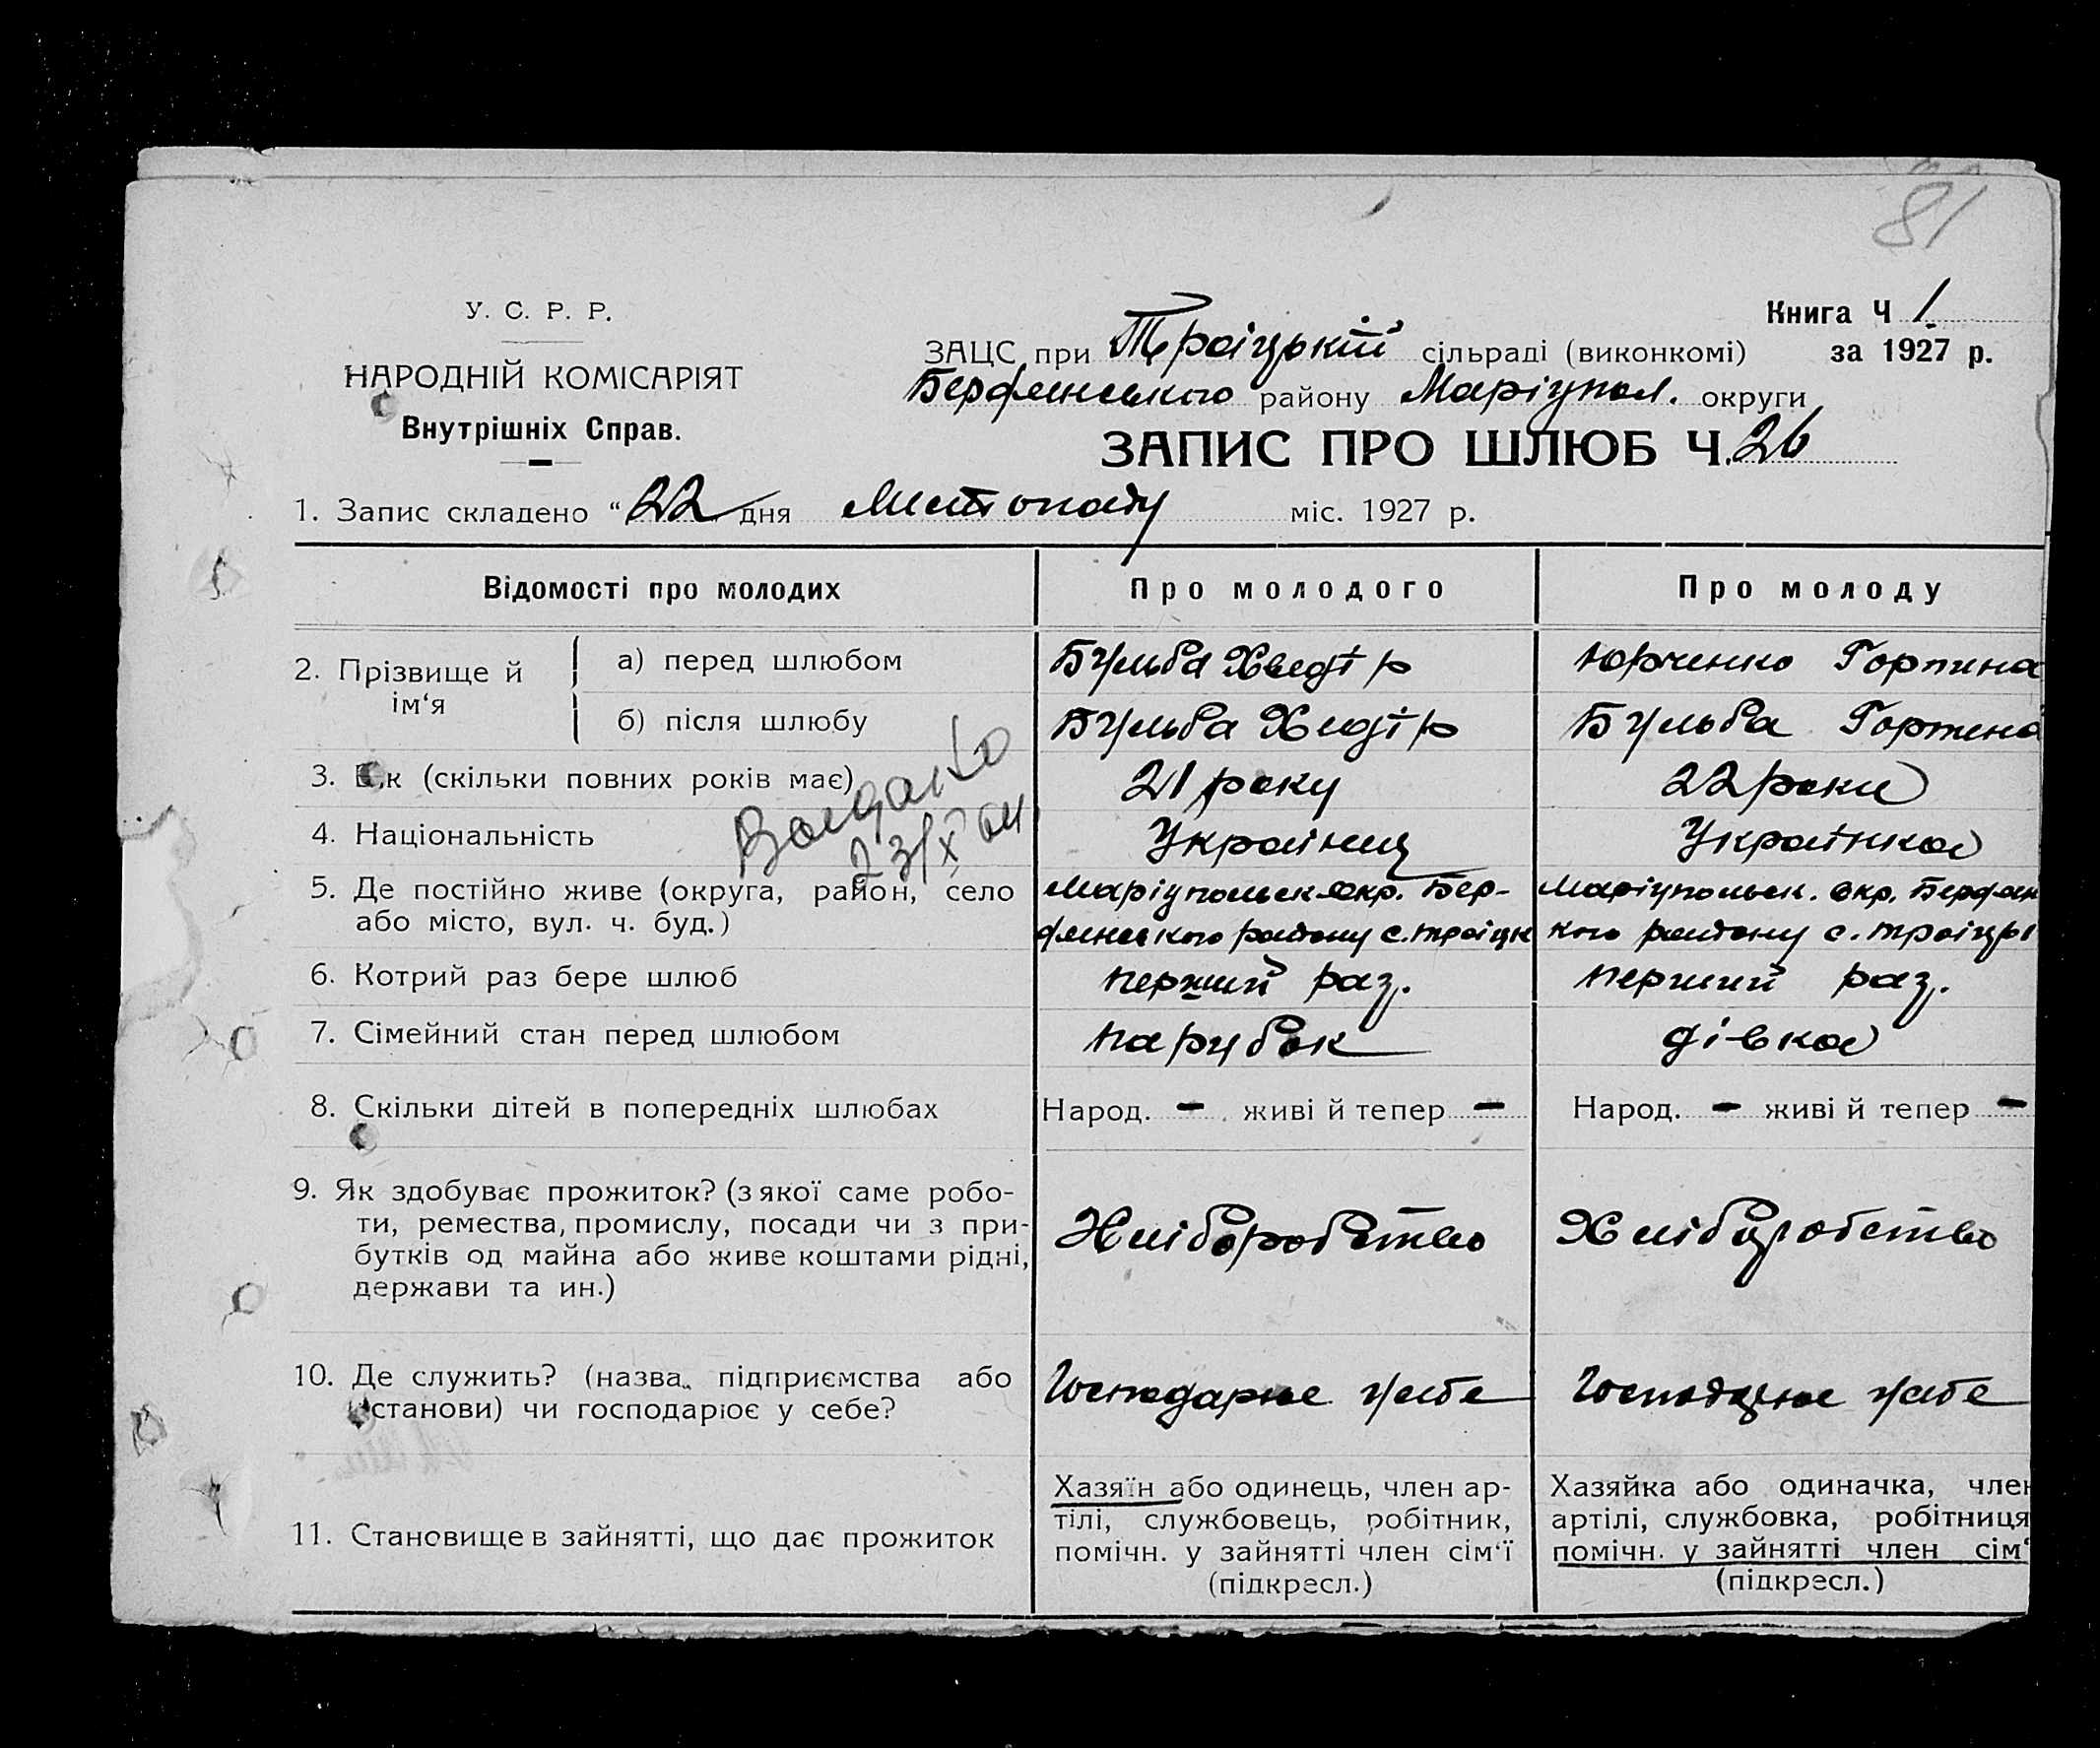 81
У. С. Р. Р.
НАРОДНІЙ КОМІСАРІЯТ
Внутрішніх Справ.
Книга Ч 1
за 1927 р.
ЗАЦС при Троіцькій сільраді (виконкомі)
Бердянського району Маріупол. округи
ЗАПИС ПРО ШЛЮБ Ч. 26
1. Запис складено "22 дня Листопаду міс. 1927 р.
Відомості про молодих Про молодого Про молоду
2. Прізвище й ім'я
а) перед шлюбом Бульба Хведір Юрченко Горпина
б) після шлюбу Бульба Хведір Бульба Горпина
3. к (скільки повних років має) 21 року 22 роки
4. Національність Українець Українка
23/X 64
5. Де постійно живе (округа, район, село
або місто, вул. ч. буд.)
Маріупольск. окр. Бер-
дянського району с. Троіцьк
Маріупольск. окр. Бердян
кого району с. Троіцьк
6. Котрий раз бере шлюб перший раз. перший раз.
7. Сімейний стан перед шлюбом парубок дівка
8. Скільки дітей в попередніх шлюбах Народ. – живі й тепер – Народ. – живі й тепер –
9. Як здобуває прожиток? (з якої саме робо-
ти, ремества, промислу, посади чи з при-
бутків од майна або живе коштами рідні,
держави та ин.)
Хліборобство Хліборобство
10. Де служить? (назва підприємства або
установи) чи господарює у себе?
Господарює у себе Господарює у себе
11. Становище в зайнятті, що дає прожиток
Хазяїн або одинець, член ар-
тілі, службовець, робітник,
помічн. у зайнятті член сім'ї
(підкресл.)
Хазяйка або одиначка, член
артілі, службовка, робітниця
помічн. у зайнятті член сім'
(підкресл.)